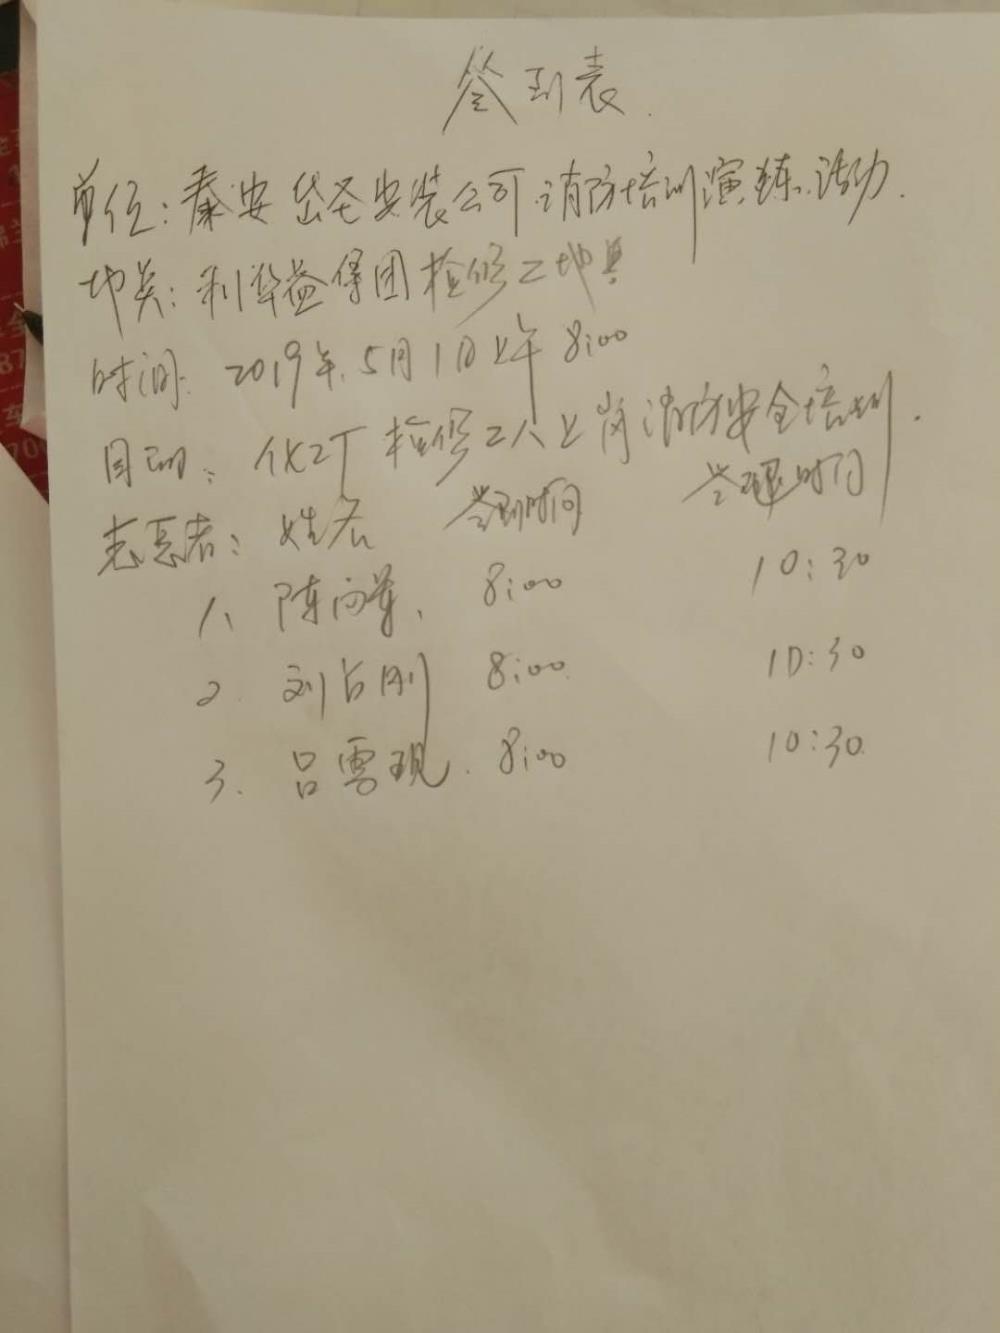 签到表
单位：泰安岱圣安装公司.消防培训演练.活动.
地点：利华益集团检修工地
时间：2019年.5月1日上午 8:00
目的：化工厂检修工人上岗消防安全培训.
志愿者：姓名 签到时间 签退时间
1、陈 8:00 10:30
2. 刘占刚 8:00 10:30
3. 吕雪现. 8:00 10:30